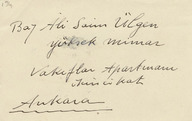 Bay Ali Saim Ülgen
yüksek mimar
Vakıflar Apartmanı
ikinci kat
Ankara